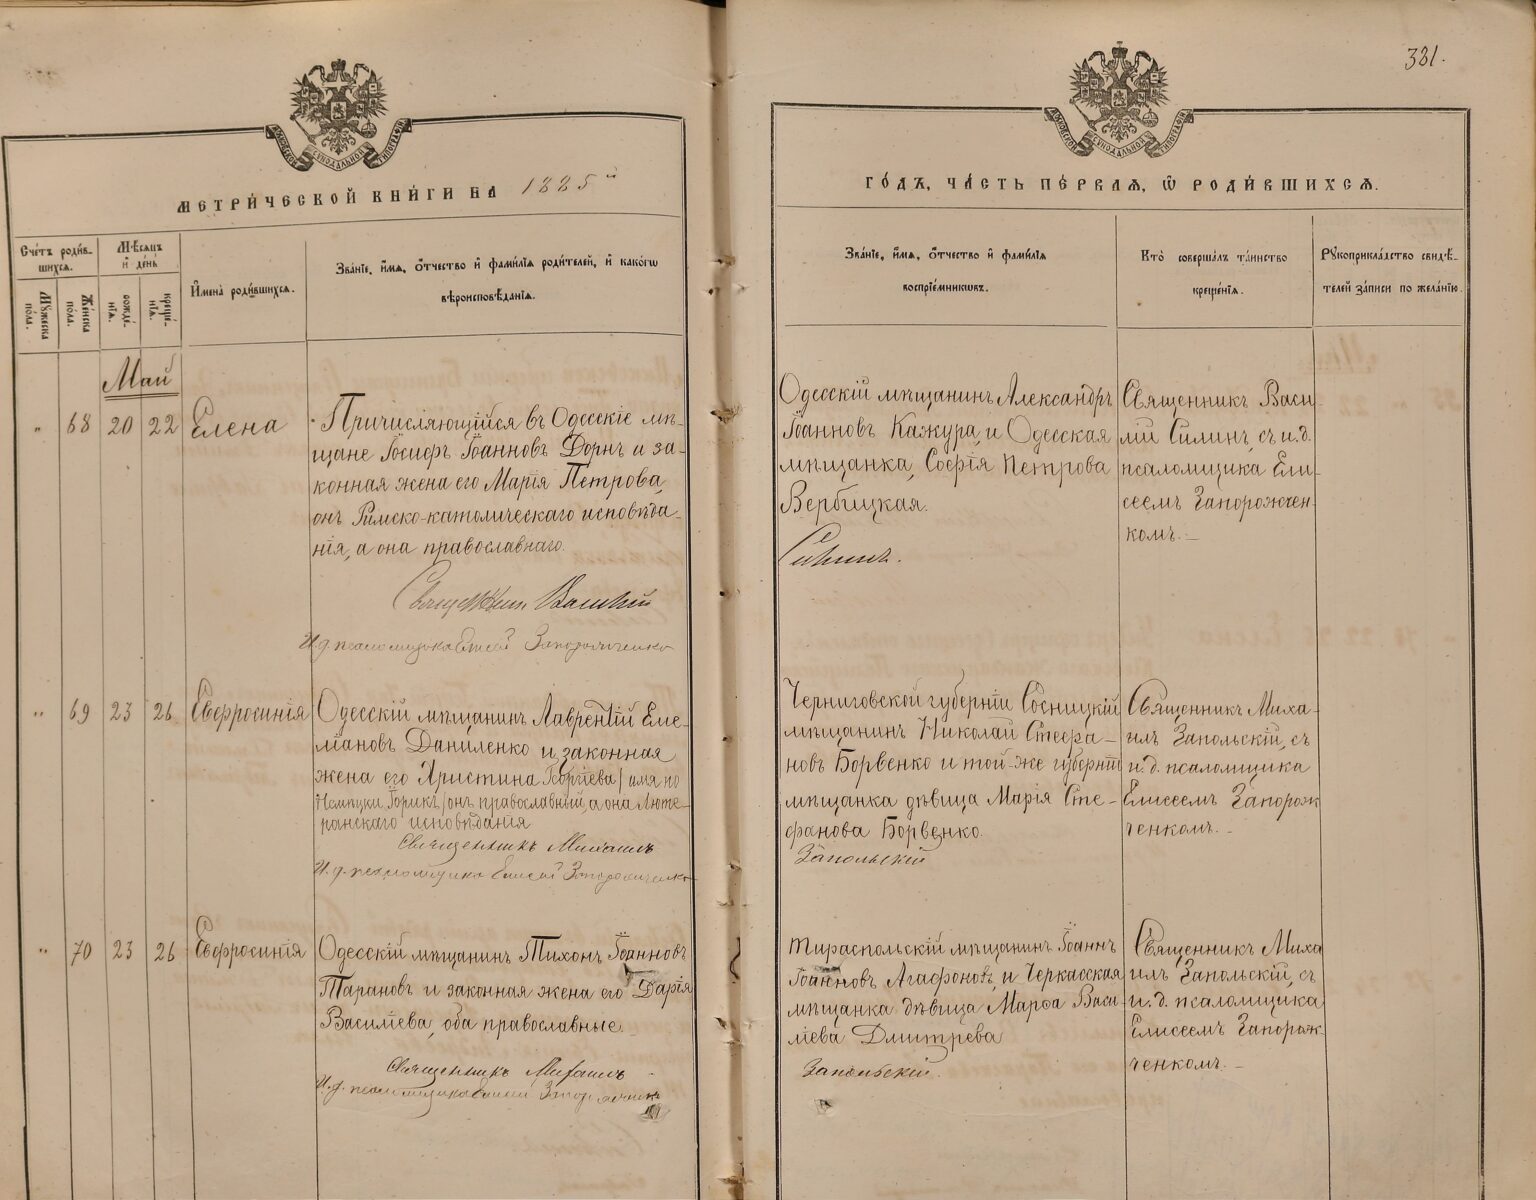 381.
МОСКОВСКОЙ СѴНОДАЛЬНОЙ ТИПОГРАФІИ
МОСКОВСКОЙ СѴНОДАЛЬНОЙ ТИПОГРАФІИ
МЕТРИ́ЧЕСКОЙ КНИ́ГИ НА 1885й
ГО́ДЪ, ЧА́СТЬ ПЕ́РВАЯ, Ѡ҆ РОДИ́ВШИХСЯ.
Сче́тъ роди́в-
шихся.
Мꙋ́жеска по́ла.
Же́нска по́ла.
Мѣ́сяцъ и҆ де́нь
рожде́-
нїя.
креще́-
нїя.
И҆мена̀ роди́вшихся.
Зва́нїе, и҆́мя, ѻ҆́тчество и҆ фами́лїя роди́телей, и҆ како́гѡ
вѣроисповѣ́данїя.
Зва́нїе, и҆́мя, ѻ҆́тчество и҆ фами́лїя
воспрїе́мникѡвъ.
Кто̀ соверша́лъ та́инство
креще́нїя.
Рꙋкоприкла́дство свидѣ́-
телей за́писи по жела́нїю.
Май
" 68 20 22 Елена
Причисляющійся въ Одесскіе мѣ-
щане Іосифъ Іоанновъ Дорнъ и за-
конная жена его Марія Петрова,
онъ Римско-католическаго исповѣда-
нія, а она православнаго.
Священникъ Василій
И.д. псаломщика Елисей Запорожченко
Одесскій мѣщанинъ Александръ
Іоанновъ Кажура, и Одесская
мѣщанка, Софія Петрова
Вербицкая.
Силинъ.
Священникъ Васи-
лій Силинъ, съ и.д.
псаломщика Ели-
сеемъ Запорожчен-
комъ.-
" 69 23 26 Евфросинія
Одесскій мѣщанинъ Лаврентій Еме-
ліановъ Даниленко и законная
жена его Христина Георгіева / имя по
Нѣмецки Іорикъ / онъ православный, а она Люте-
ранскаго исповѣданія
Священникъ Михаилъ
И.д. псаломщика Елисей Запорожченко
Черниговской губерніи Сосницкій
мѣщанинъ Николай Стефа-
новъ Борвенко и той-же губерніи
мѣщанка дѣвица Марія Сте-
фанова Борвенко.
Запольскій
Священникъ Миха-
илъ Запольскій, съ
и.д. псаломщика
Елисеемъ Запорож
ченкомъ.-
" 70 23 26 Евфросинія
Одесскій мѣщанинъ Тихонъ Іоанновъ
Тарановъ и законная жена его Дарія
Василіева, оба православные
Священникъ Михаилъ
И.д. псаломщика Елисей Запорожченко
Тираспольскій мѣщанинъ Іоаннъ
Іоанновъ Агафоновъ, и Черкасская
мѣщанка дѣвица Марѳа Васи-
ліева Дмитрева
Запольскій.
Священникъ Миха
илъ Запольскій, съ
и.д. псаломщика
Елисеемъ Запорож
ченкомъ.-